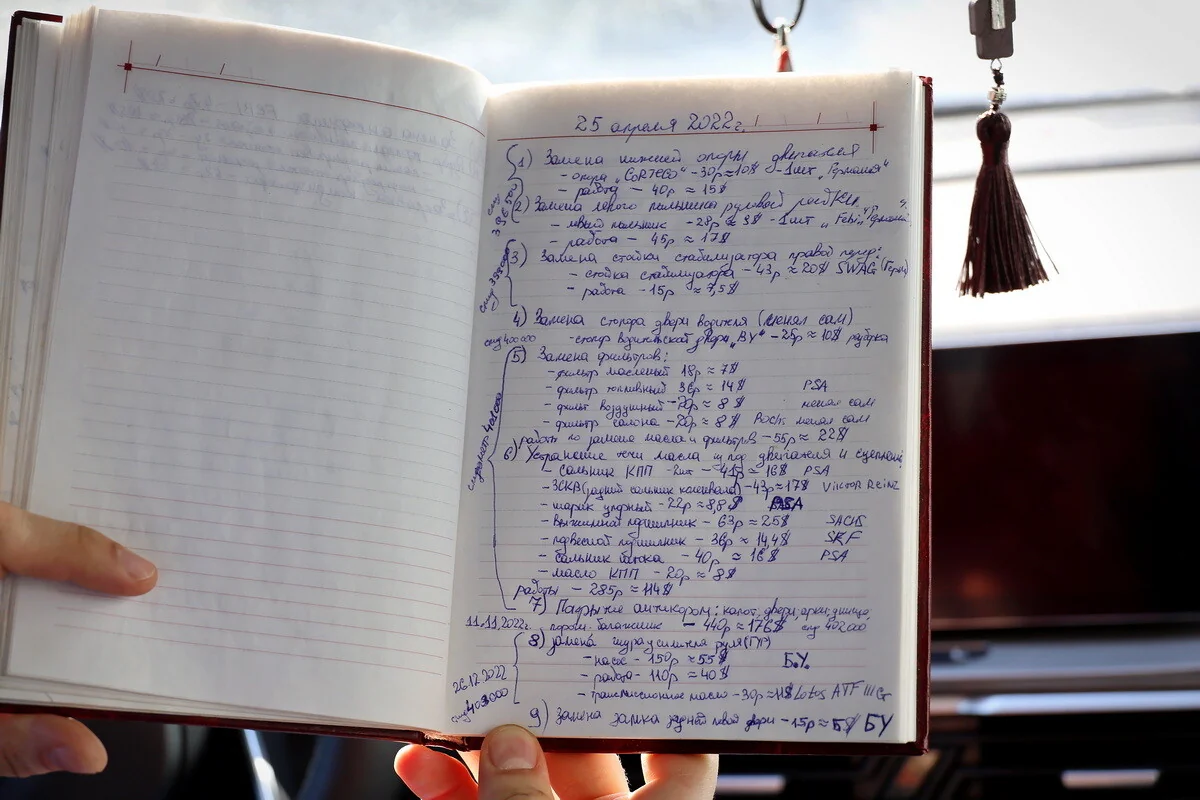 25 апреля 2022г.
1) Замена нижней опоры двигателя
- опора "CORTECO" - 30р ≈ 10$ - 1шт "Германия"
- работа - 40р ≈ 15$
2) Замена левого пальчика рулевой
- левый пальчик - 28р ≈ - 1шт "Febi"
- работа - 45р ≈ 17$
3) Замена стойки стабилизатора правой перед:
- стойка стабилизатора - 43р ≈ 20$ SWAG
- работа - 15р ≈ 7,5$
4) Замена стопора двери водителя (менял сам)
спид 400000 - стопор водительской двери "BY" - 25р ≈ 10$ разборка
5) Замена фильтров:
- фильтр масленый 18р ≈ 7$
- фильтр топливный 36р ≈ 14$ PSA
- фильт воздушный - 20р ≈ 8$ менял сам
- фильтр салона - 20р ≈ 8$ менял сам
работы по замене масла и фильтров - 55р ≈ 22$
спидометр 401000
6) Устранение течи масла из под двигателя и сцепления
- сальник КПП - 2шт - 41р ≈ 16$ PSA
- ЗСКВ (задний сальник коленвала) - 43р ≈ 17$ Viktor Reinz
- шарик упорный - 22р ≈ 8,8$ PSA
- выжимной подшипник - 63р ≈ 25$ SACHS
- подвесной подшипник - 36р ≈ 14,4$ SKF
- сальник бачка - 40р ≈ 16$ PSA
- масло КПП - 20р ≈ 8$
работы - 285р ≈ 114$
7) Покрытие антикором: капот, двери, арки, днище,
11.11.2022г. пороги. багажник - 440р ≈ 176$ спид 402000
8) Замена гидроусилителя руля (ГУР)
- насос - 150р ≈ 55$ Б.У.
26.12.2022 - работа - 110р ≈ 40$
спид 403000 - трансмиссионное масло - 30р ≈ 11$ Lotos ATF III G
9) Замена замка задней левой двери - 15р ≈ 5$ БУ